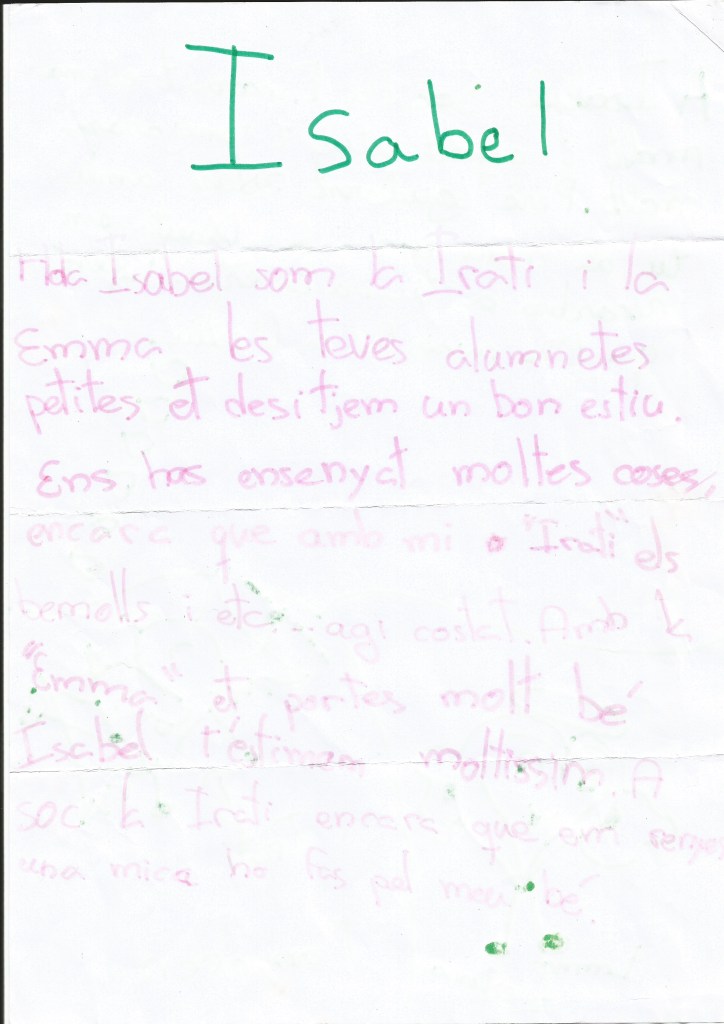 Isabel
Hola Isabel som la Irati i la
Emma les teves alumnetes
petites et desitjem un bon estiu.
Ens has ensenyat moltes coses,
encara que amb mi "Irati" els
bemolls i etc....agi costat. Amb la
"Emma" et portes molt bé
Isabel t'estimem moltissim. A
soc la Irati encara que em renyes
una mica ho fas pel meu bé.